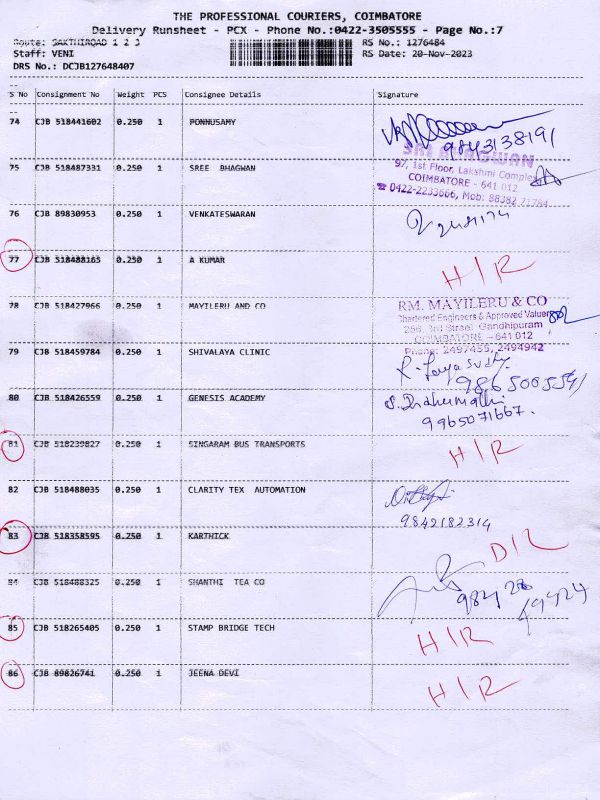 THE PROFESSIONAL COURIERS, COIMBATORE
Delivery Runsheet - PCX - Phone No.:0422-3505555 - Page No.:7
Route: SAKTHIROAD 1 2 3 RS No.: 1276484
Staff: VENI RS Date: 20-Nov-2023
DRS No.: DCJB127648407
S No Consignment No Weight PCS Consignee Details Signature
74 CJB 518441602 0.250 1 PONNUSAMY
9843138191
75 CJB 518487331 0.250 1 SREE BHAGWAN SRI BHAGWAN
97, 1st Floor, Lakshmi Complex
COIMBATORE - 641 012
☎ 0422-2233666, Mob: 88382 71784
76 CJB 89830953 0.250 1 VENKATESWARAN
77 CJB 518488165 0.250 1 A KUMAR H/R
78 CJB 518427966 0.250 1 MAYILERU AND CO RM. MAYILERU & CO
Chartered Engineers & Approved Valuers
266, 3rd Street Gandhipuram
COIMBATORE - 641 012
Phone: 2497455, 2494942
79 CJB 518459784 0.250 1 SHIVALAYA CLINIC
9865005591
80 CJB 518426559 0.250 1 GENESIS ACADEMY S. Indhumathi
9965071667.
81 CJB 518239827 0.250 1 SINGARAM BUS TRANSPORTS H/R
82 CJB 518488035 0.250 1 CLARITY TEX AUTOMATION
9842182314
83 CJB 518358595 0.250 1 KARTHICK D/L
84 CJB 518488325 0.250 1 SHANTHI TEA CO 984 28
49424
85 CJB 518265405 0.250 1 STAMP BRIDGE TECH H/R
86 CJB 89826741 0.250 1 JEENA DEVI H/R